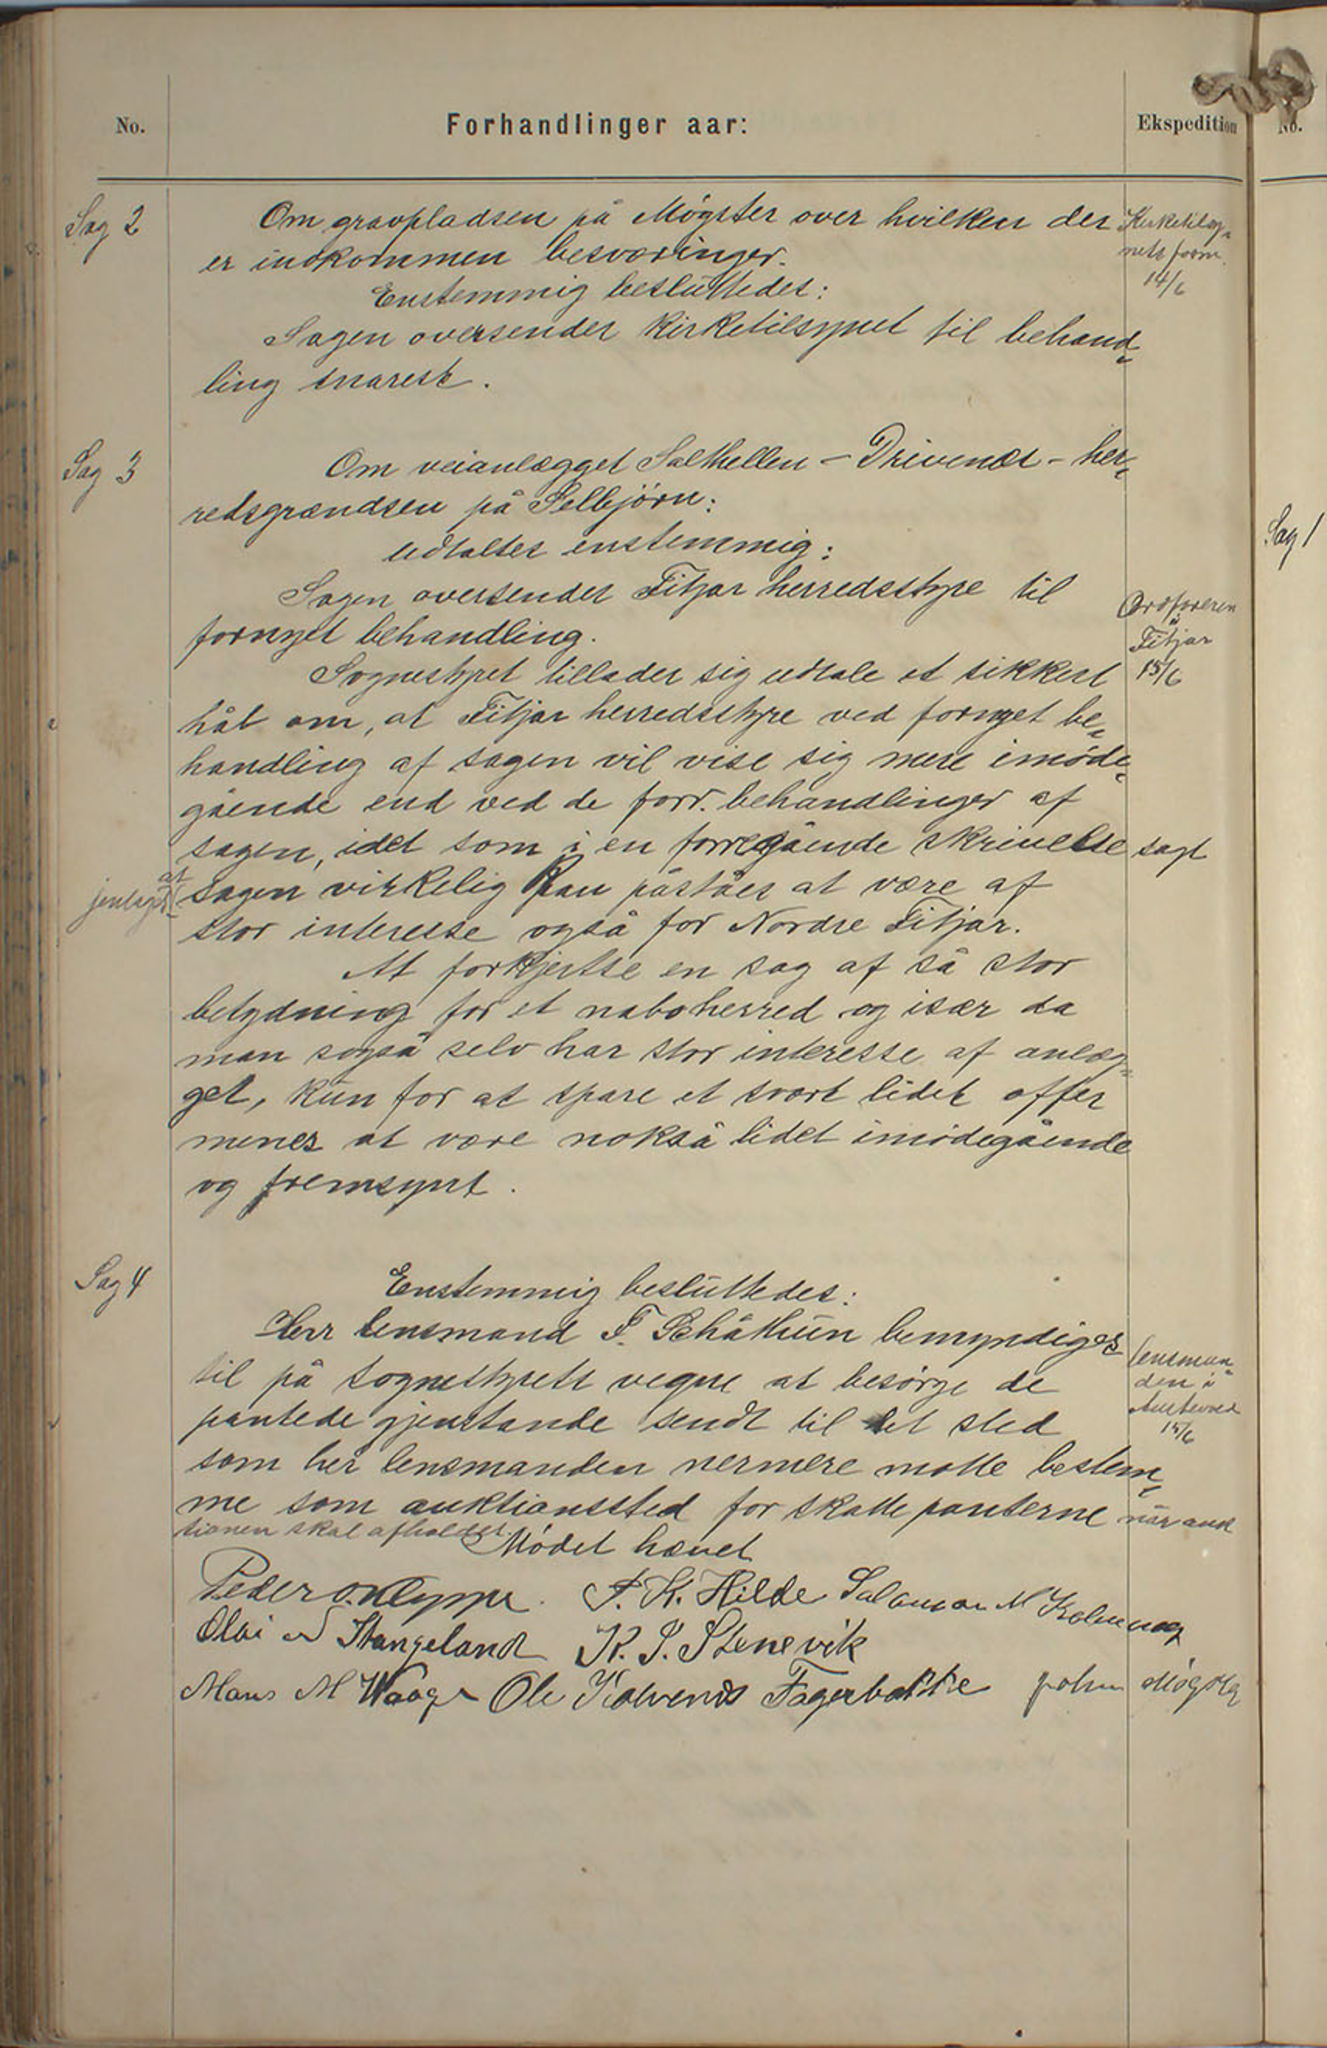 No. Forhandlinger aar: Ekspedition No.
Sag 2 Om gravpladsen på Møgster over hvilken der
er indkommen besværinger.
Kirketilsy-
nets form.
14/6
Enstemmig besluttedes:
Sagen oversendes kirketilsynet til behand-
ling snarest.
Sag 3 Om veianlægget Salthellen - Drivenæs - her-
redsgrændsen på Selbjörn:
Udtaltes enstemmig:
Sagen oversendes Fitjar herredsstyre til
fornyet behandling.
Ordføreren
i
Fitjar
15/6
Sognestyret tillader sig udtale et sikkert
håb om, at Fitjar herredsstyre ved fornyet be-
handling af sagen vil vise sig mere imøde-
gående end ved de forr. behandlinger af
sagen, idet som i en forregående skrivelse sagt
at
sagen virkelig kan påståes at være af
stor interesse også for Nordre Fitjar.
At forkjertse en sag af så stor
betydning for et naboherred og især da
man også selv har stor interesse af anlæg-
get, kun for at spare et svært lidet offer
menes at være nokså lidet imødegående
og fremsynt.
Sag 4 Enstemmig besluttedes:
Herr lensmand F. Schåthun bemyndiges
til på sognestyrets vegne at besørge de
pantede gjenstande sendt til det sted
som her lensmanden nermere måtte bestem-
me som auktionssted for skatte panterne når auk
tionen skal afholdes
lensman-
den i
Austevoll
15/6
Mødet hævet
Peder O. Kleppe. P. K. Hilde Salamon M Kalvenæs
Olai N Stangeland K. J. Stenevik
Mans M Waage Ole Kalvenes Fagerbakke Johan Møgster
Sag 1